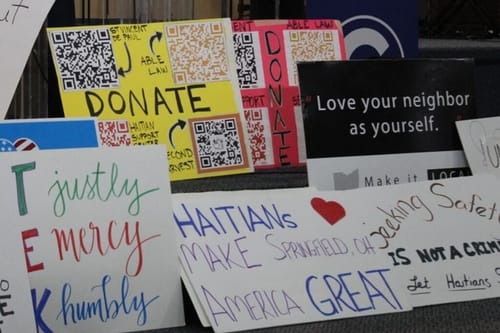 ST VINCENT
DE PAUL
ABLE
LAW
DONATE
HAITIAN
SUPPORT CENTER
SECOND
HARVEST
ABLE LAW
DONATE
"Love your neighbor
as yourself."
Make it LOCAL
T justly
E mercy
K humbly
HAITIANs
MAKE SPRINGFIELD, OH
AMERICA GREAT
Seeking Safety
IS NOT A CRIM
Let Haitians S